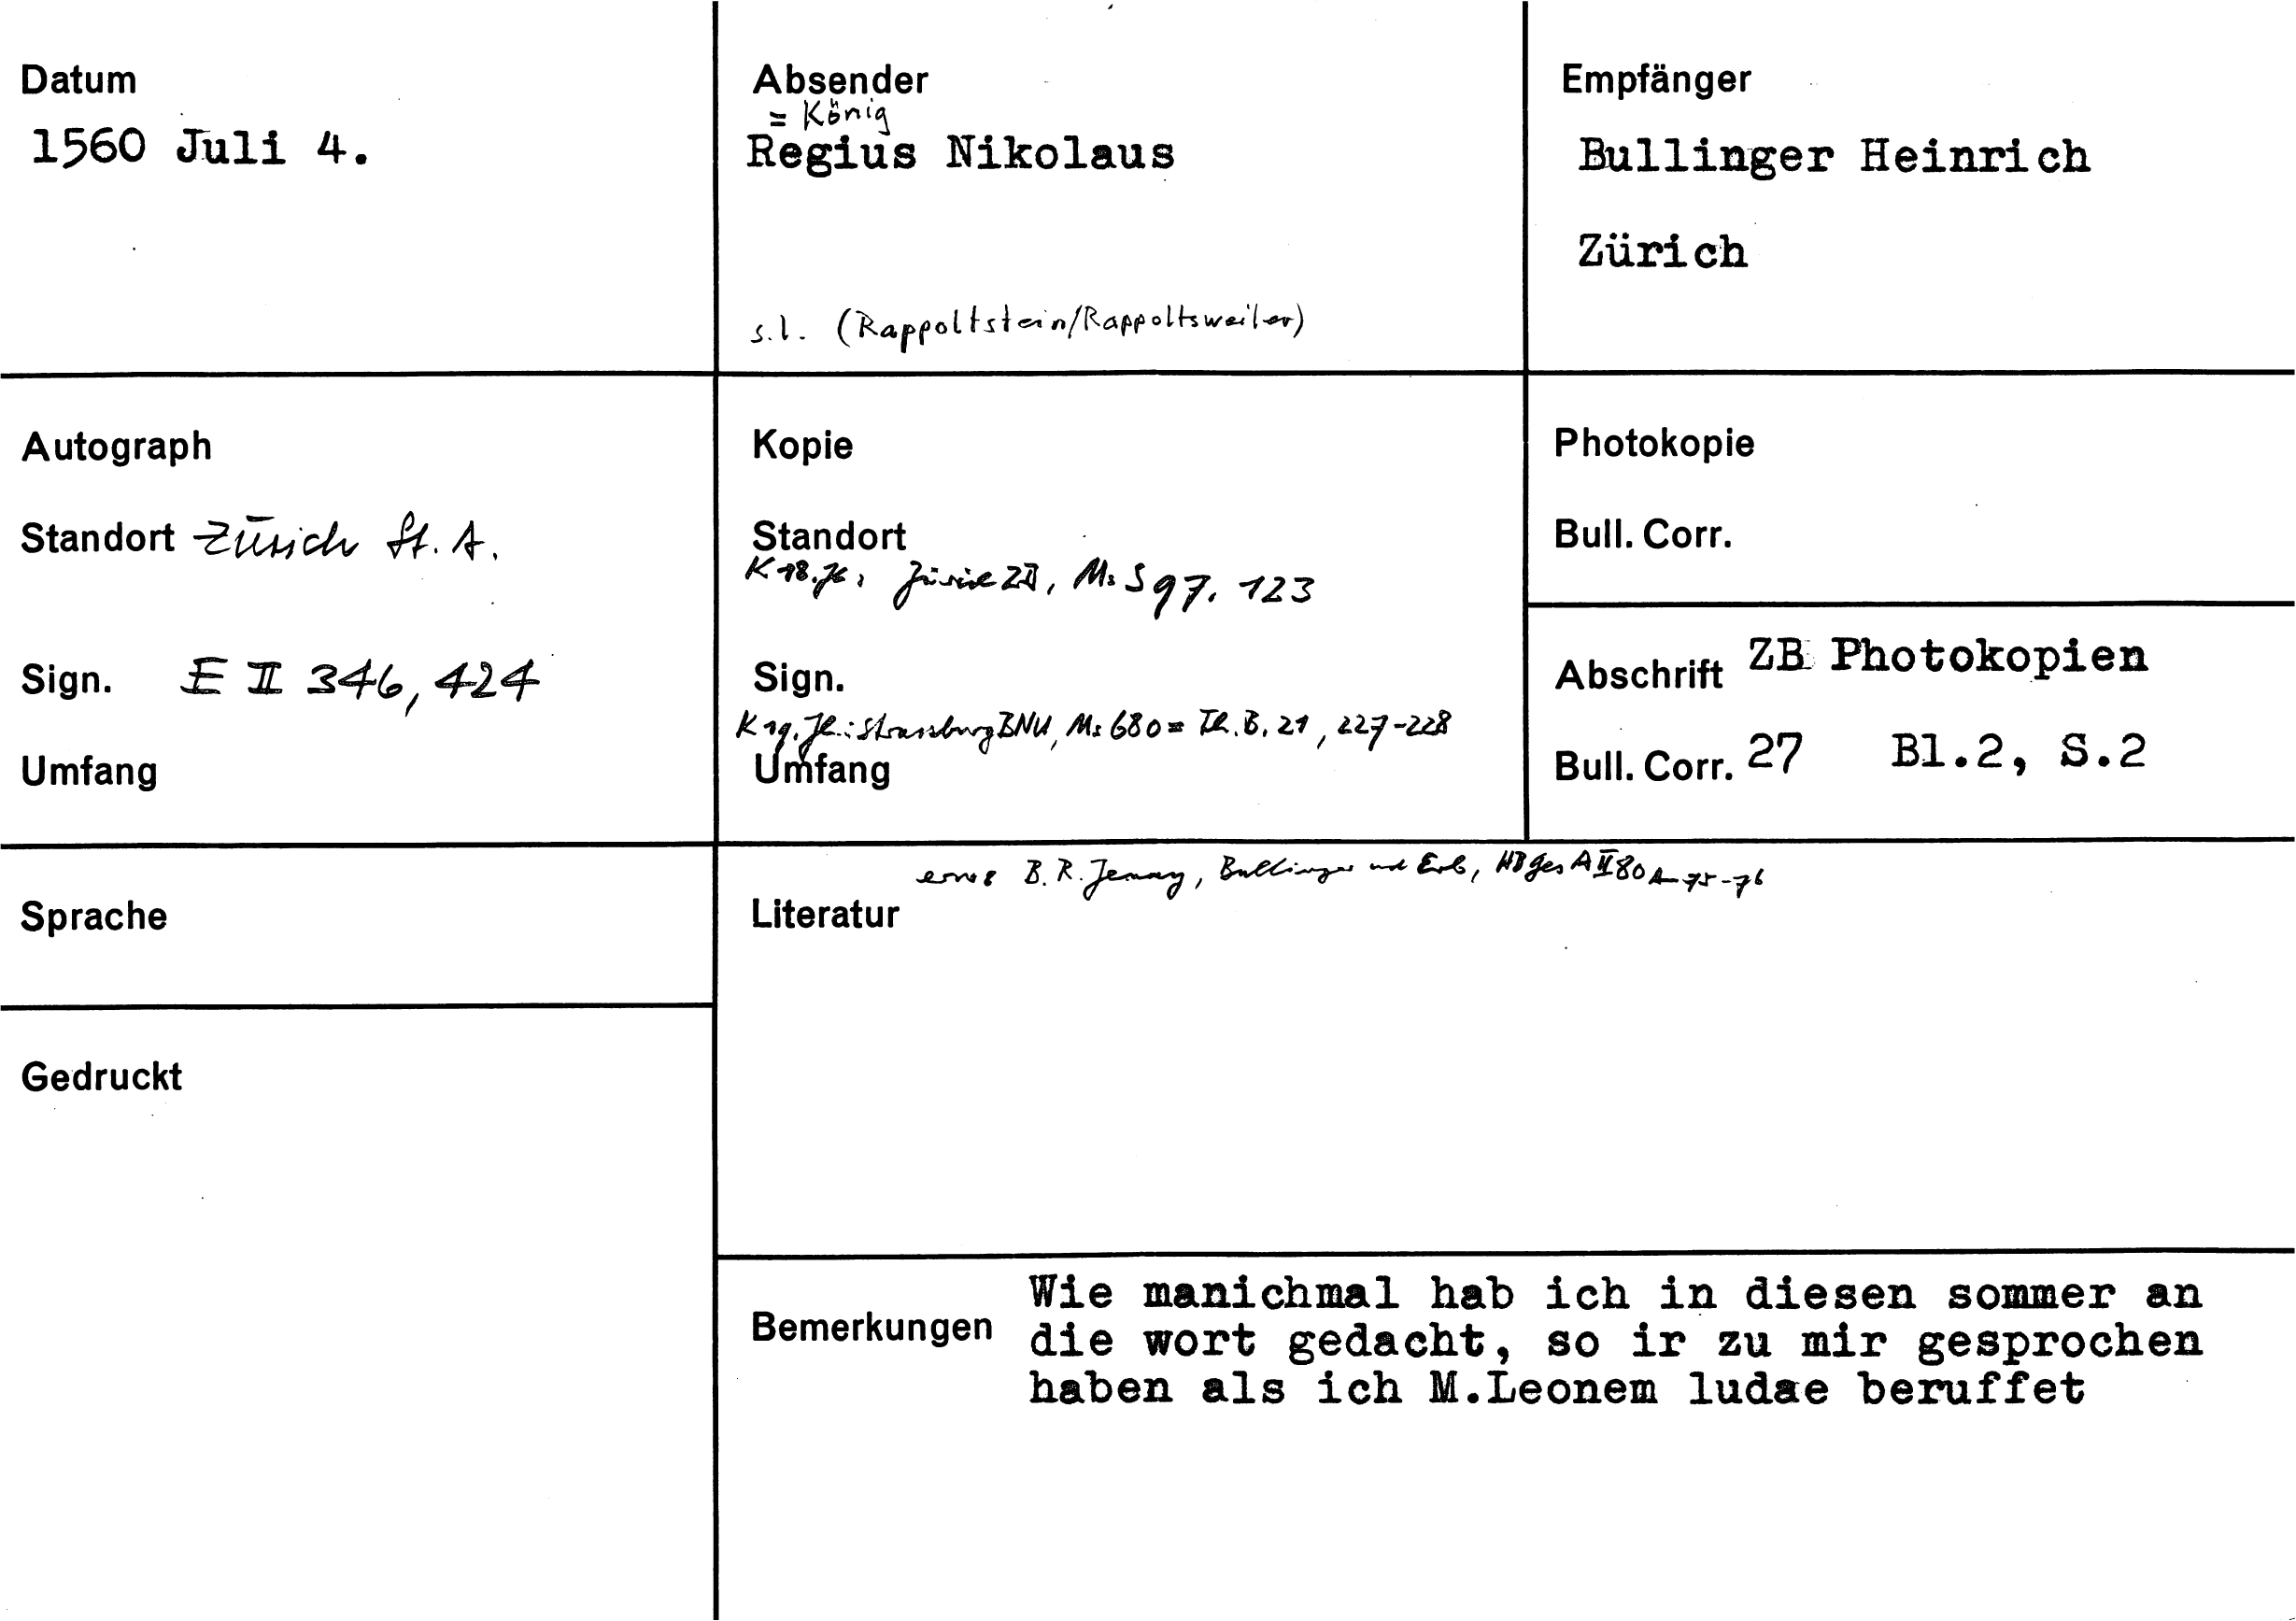 Datum
1560 Juli 4.
Absender
= König
Regius Nikolaus
s.l. (Rappoltstein/Rappoltsweiler)
Empfänger
Bullinger Heinrich
Zürich
Autograph
Standort Zürich St. A.
Sign. E II 346, 424
Umfang
Kopie
Standort
K 18. Jh, Zürich ZB, Ms S 97, 123
Sign.
K 19. Jh.: Strassburg BNU, Ms 680 = Th. B. 21, 227-228
Umfang
Photokopie
Bull. Corr.
Abschrift ZB Photokopien
Bull. Corr. 27 Bl.2, S.2
Sprache
Gedruckt
B. R. Jenny, Bullinger und Erb, HBGesA II 80 A 75-76
Literatur
Bemerkungen
Wie manichmal hab ich in diesen sommer an
die wort gedacht, so ir zu mir gesprochen
haben als ich M.Leonem ludae beruffet